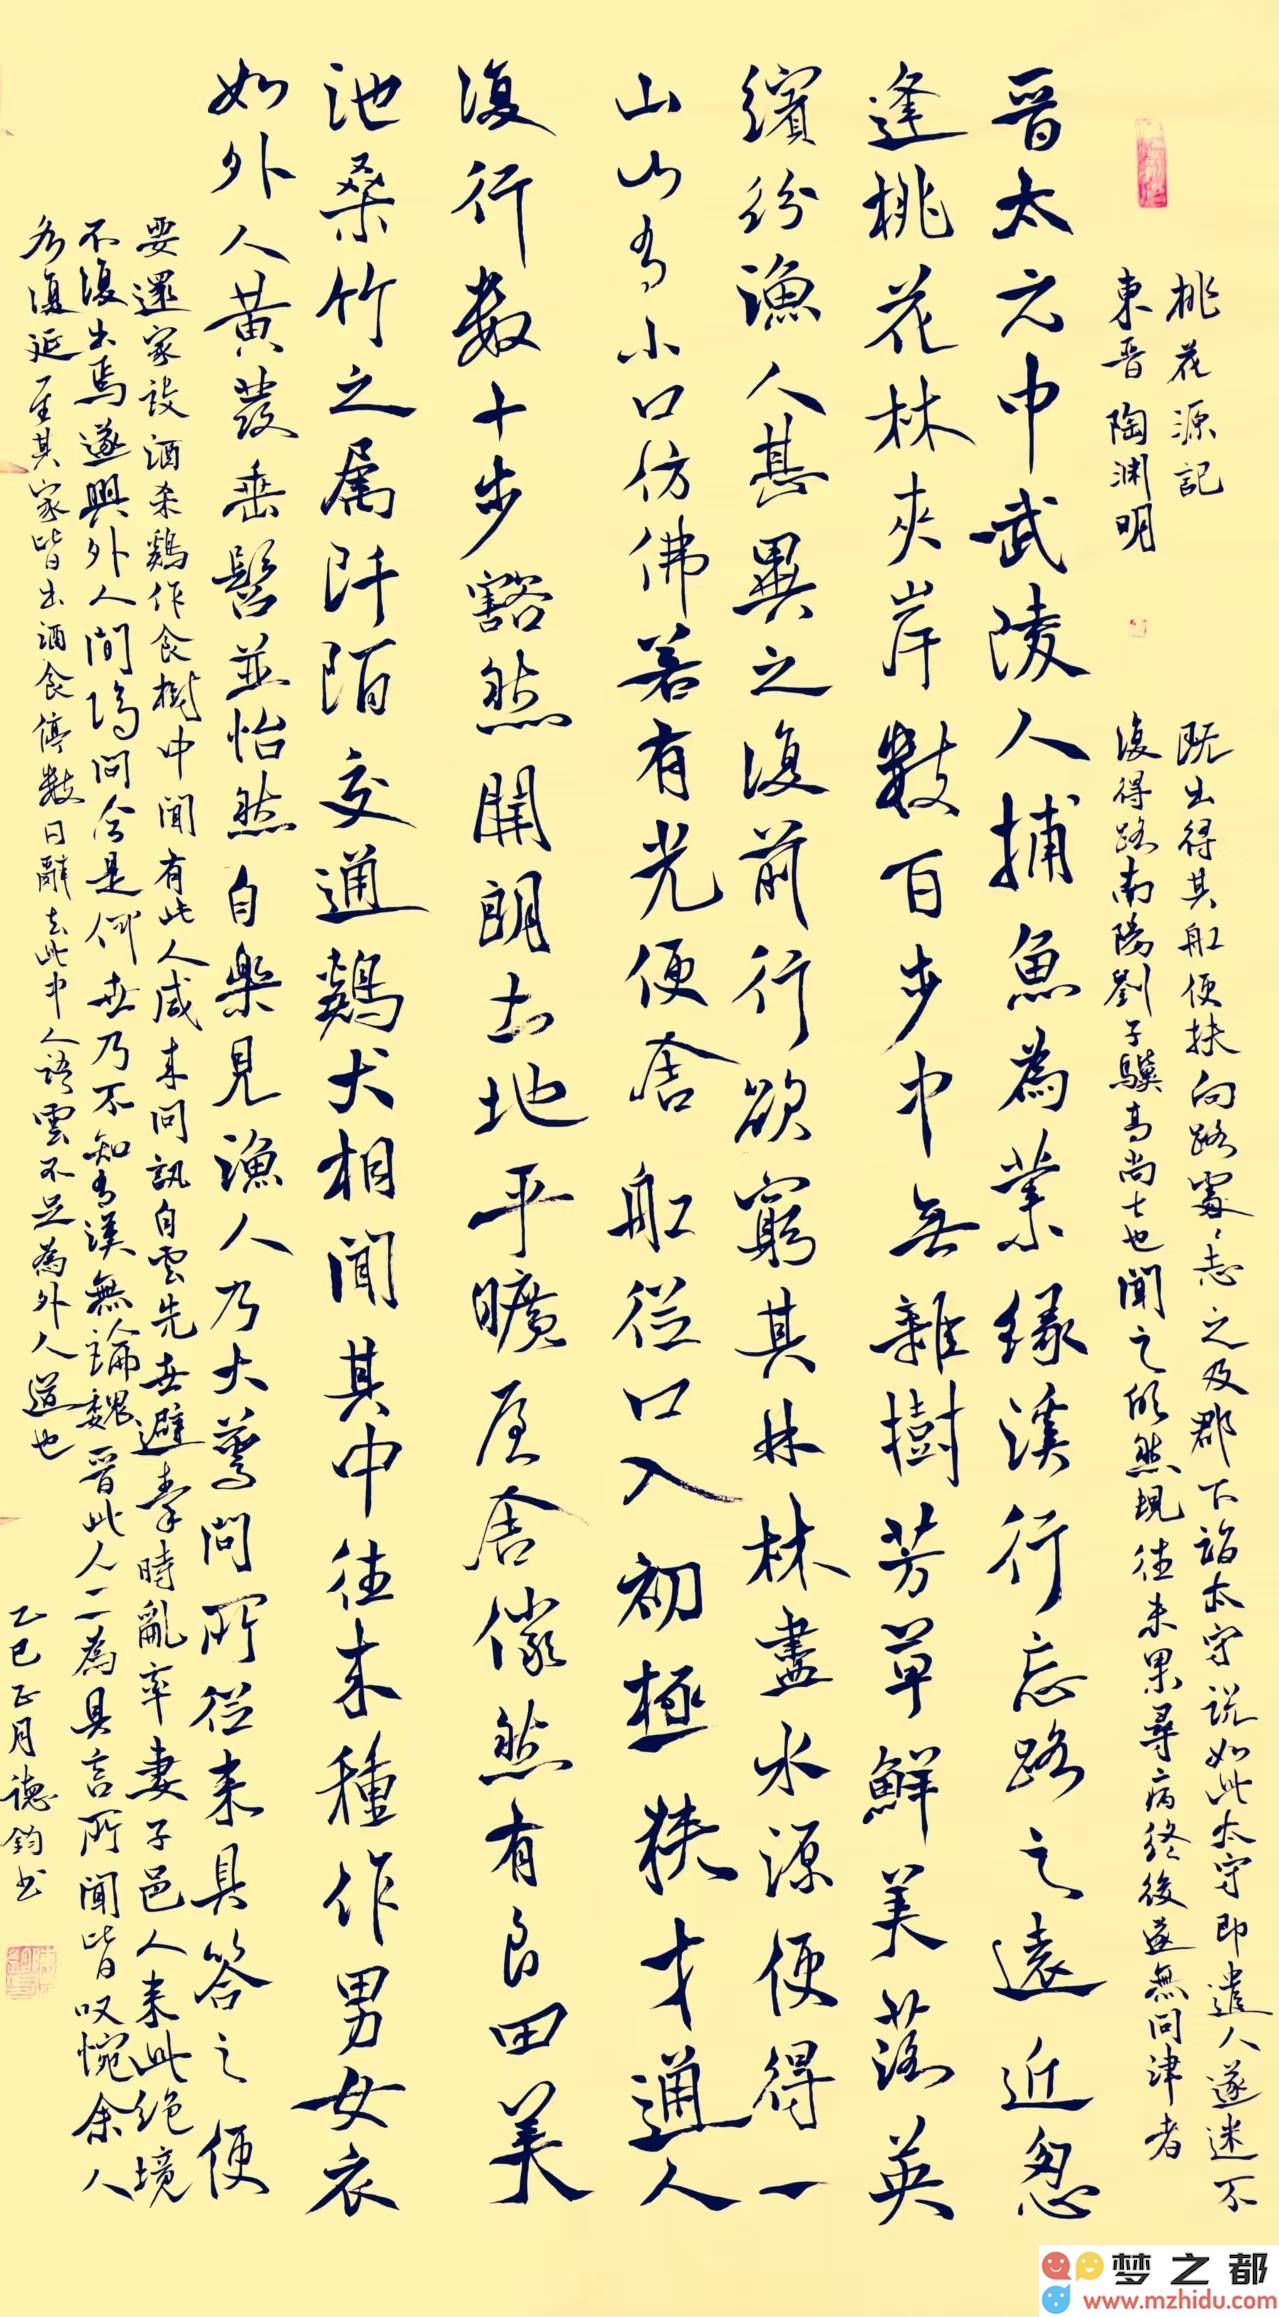 桃花源記
東晋陶渊明
晋太元中武陵人捕魚為業緣溪行忘路之遠近忽
逢桃花林夾岸數百步中無雜樹芳草鮮美落英
繽纷漁人甚異之復前行欲窮其林林盡水源便得一
山山有小口仿佛若有光便舍船從口入初極狹才通人
復行數十步豁然開朗土地平曠屋舍儼然有良田美
池桑竹之属阡陌交通鷄犬相聞其中往来種作男女衣
如外人黄發垂髫並怡然自樂見漁人乃大驚問所從来具答之便
要還家設酒杀鷄作食村中聞有此人咸来问訊自雲先世避秦時亂率妻子邑人来此绝境
不復出焉遂與外人間隔问今是何世乃不知有漢無論魏晋此人一一為具言所聞皆叹惋余人
各復延至其家皆出酒食停數日辭去此中人語雲不足為外人道也
既出得其船便扶向路處處志之及郡下詣太守说如此太守即遣人遂迷不
復得路南陽劉子驥高尚士也聞之欣然規往未果尋病终後遂無问津者
乙巳正月德鈞书
梦之都
www.mzhidu.com